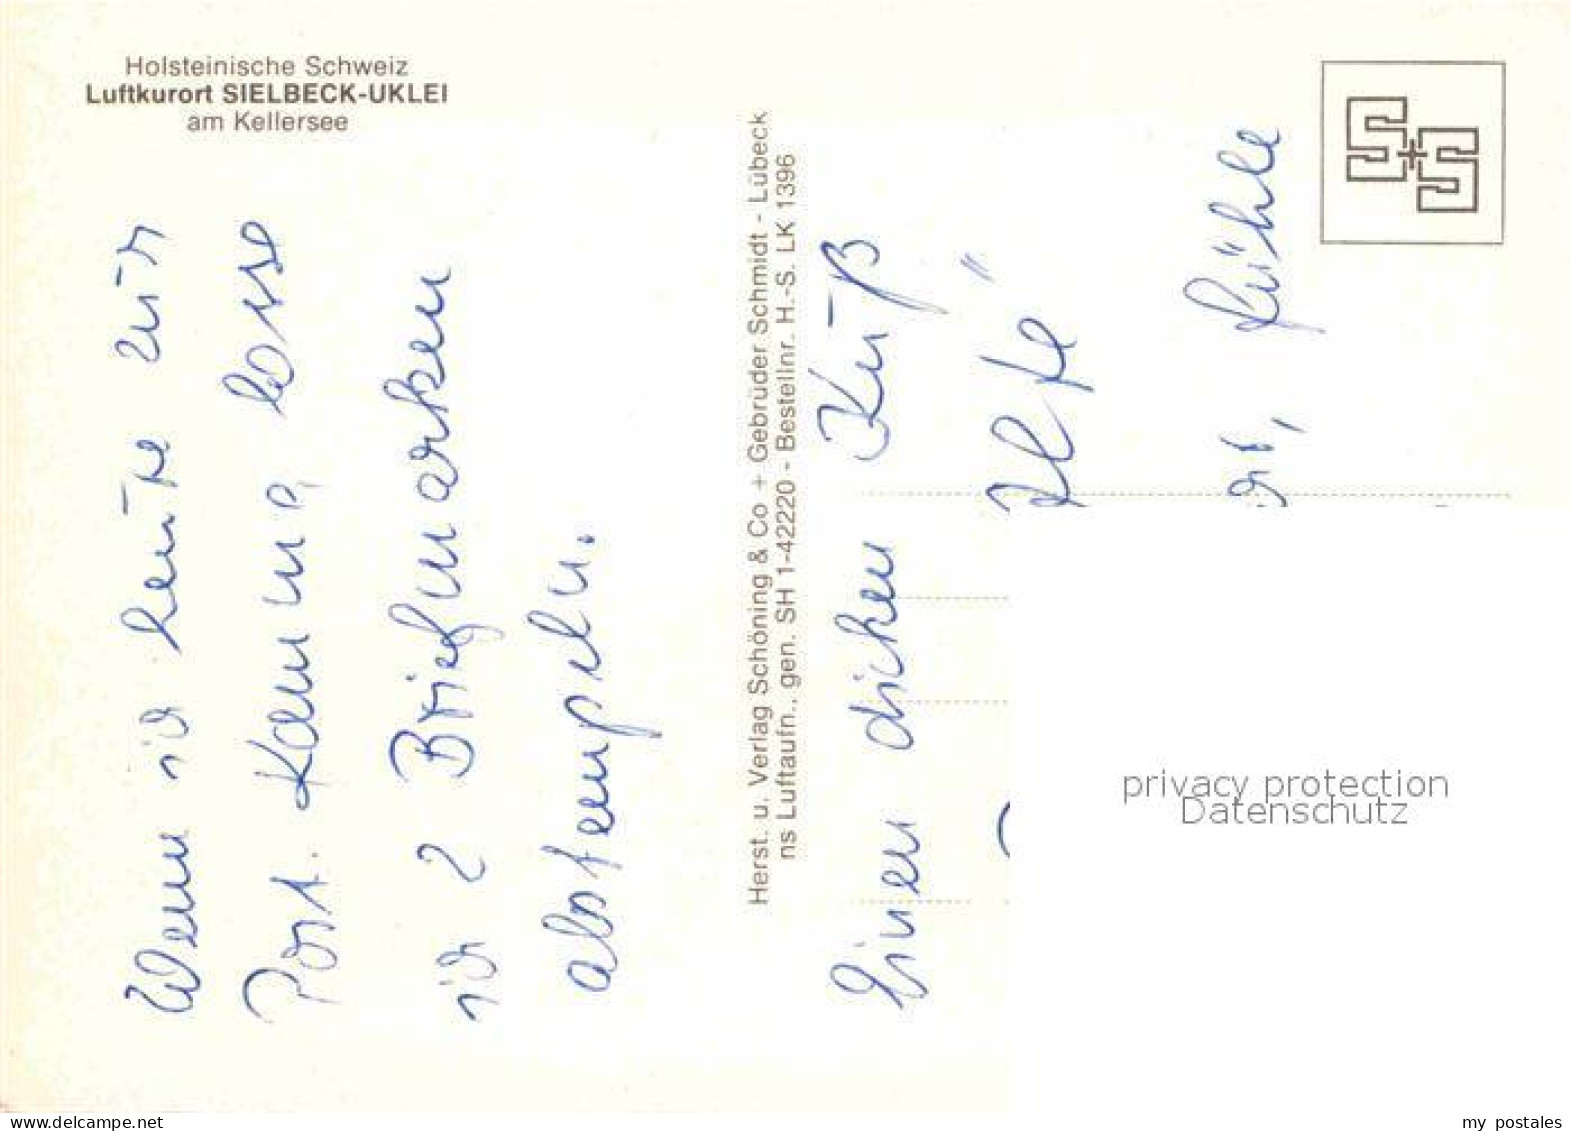 Holsteinische Schweiz
Luftkurort SIELBECK-UKLEI
am Kellersee
Wenn ich heute zur
Post komme, lasse
ich 2 Briefmarken
abstempeln.
Herst. u. Verlag Schöning & Co + Gebrüder Schmidt - Lübeck
ns Luftaufn., gen. SH 1-42220 - Bestellnr. H.-S. LK 1396
Einen dicken Kuß
S+S
privacy protection
Datenschutz
delcampe.net
my_postales